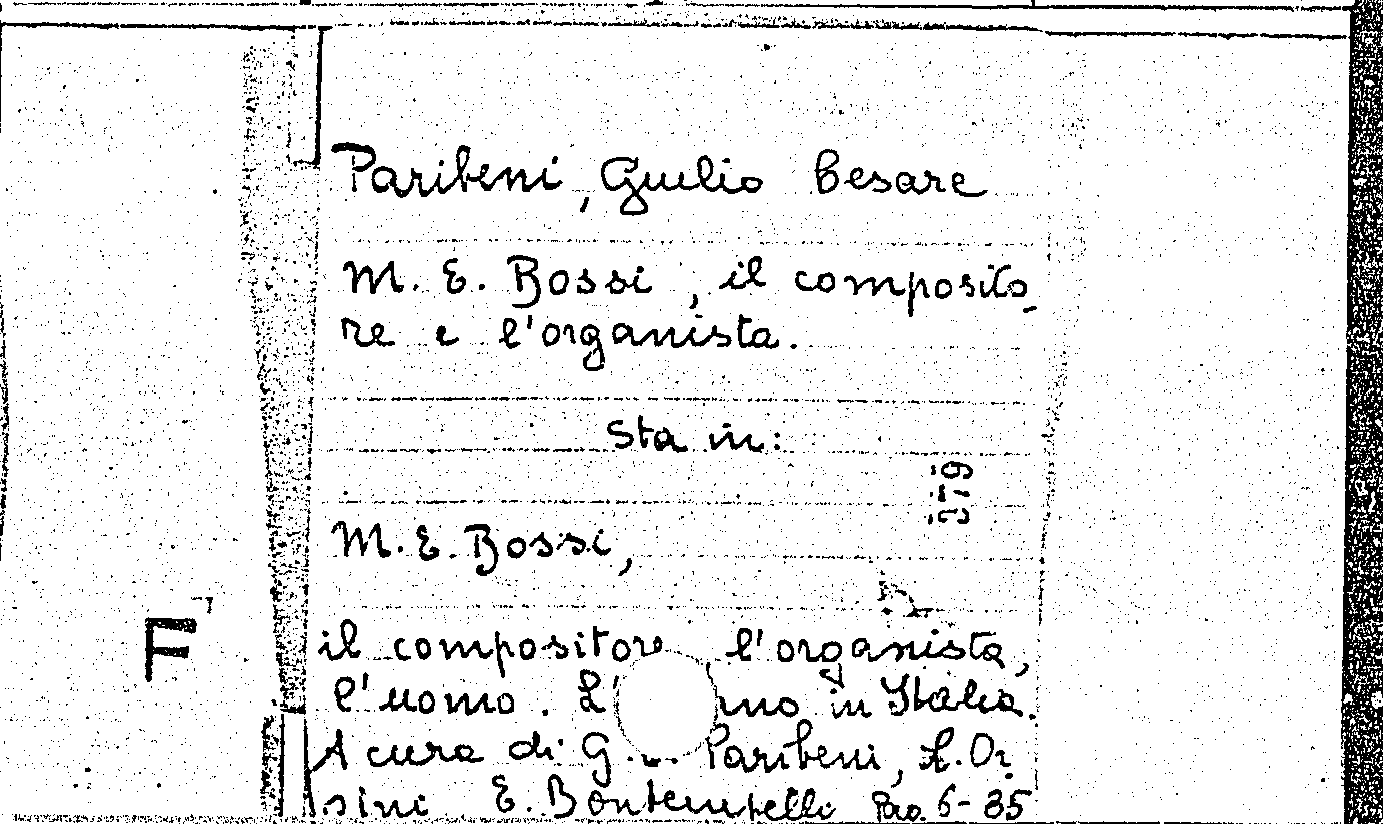 Paribeni, Giulio Cesare
M. E. Bossi, il composito-
re e l'organista.
Sta in:
379
M. E. Bossi,
F
il compositore, l'organista,
l'uomo. L' in Italia.
A cura di G. Paribeni, L. Or-
sini E. Bontempelli Pag. 6-35